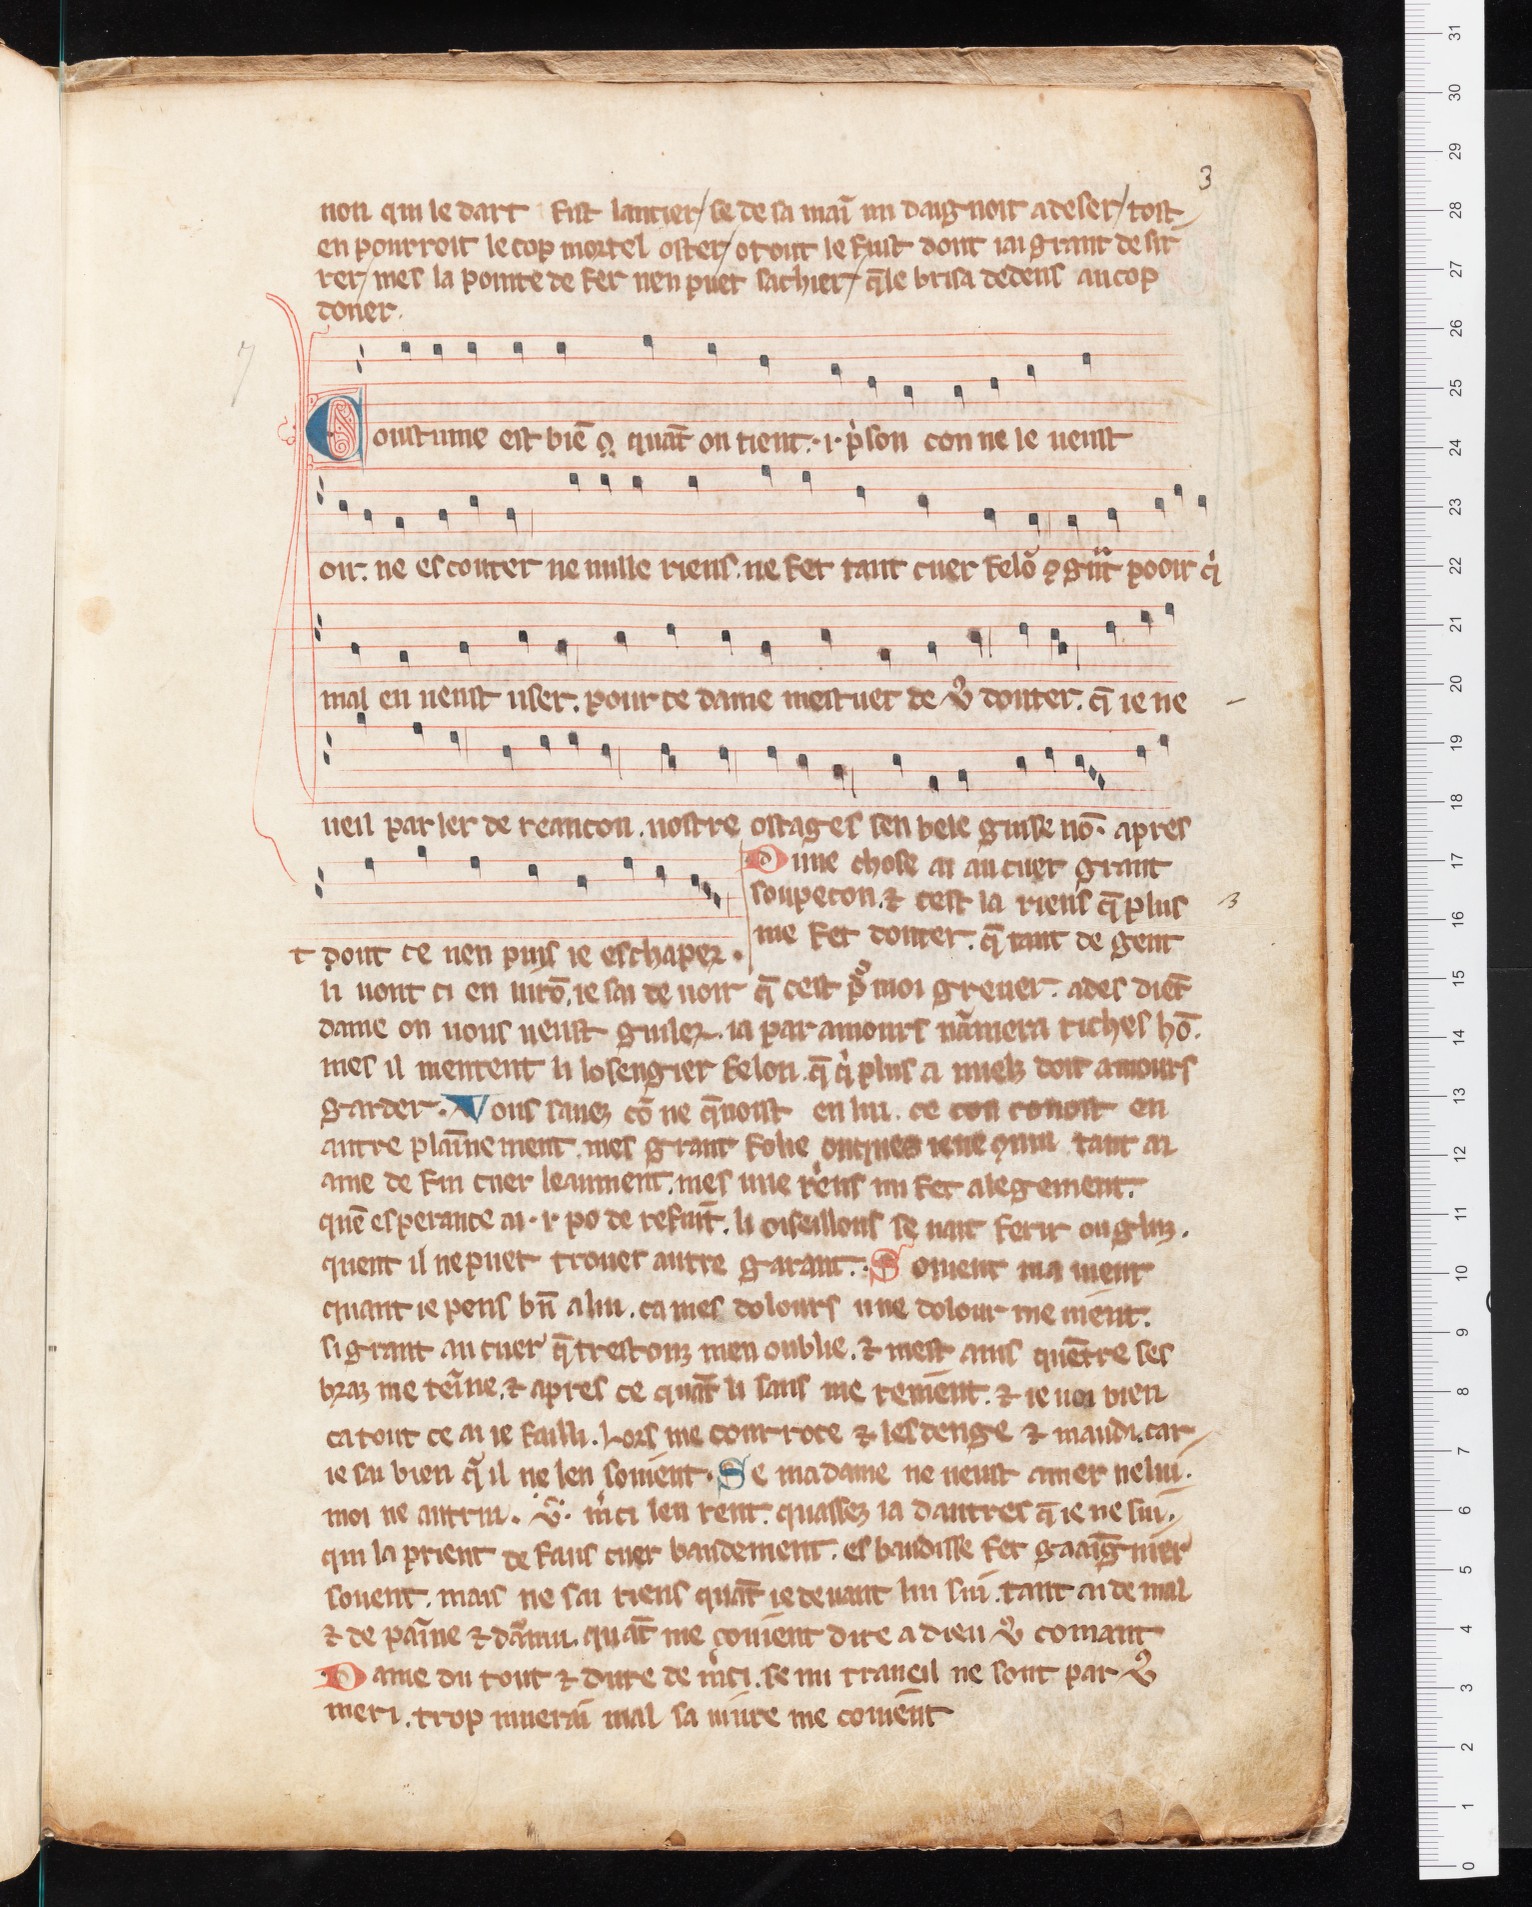 3
non qui le dart fist lancier/ se de sa mai᷃ mi daignoit adeser/ tost
en pourroit le cop mortel oster/ otout le fust dont iai grant desir
rer/ mes la pointe de fer nen puet sachier/ q̄le brisa dedens au cop
doner.
7
Coustume est biē quāt on tient .i. pⁱson con ne le ueust
oir. ne escouter ne nulle riens. ne fet tant cuer felō 9 gn̄t pooir qⁱ
mal en ueust user. pour ce dame mestuet de uͦ douter. q̄ ie ne
ueil parler de reancon. nostre ostages sen bele guise nō. apres
Dune chose ai au cuer grant
soupecon. ⁊ cest la riens q̄ plus
me fet douter. q̄ tant de gent
t dont ce nen puis ie eschaper.
li uont ci en uirō. ie sai de uoir q̄ cest pͦ moi greuer. ades diēt
dame on uous ueust guiler. ia par amours nāmera riches hō.
mes il mentent li losengier felon. q̄ qⁱ plus a muelz doit amours
garder. Vous sauez cō ne q̄noist en lui. ce con conoist en
autre plaīnement. mes grant folie onques tant ai
ame de fin cuer leaument. mes une rⁱens mi fet alegement.
quē esperance ai .i. po de refuit. li oiseillons se uait ferir ou gluz.
quent il ne puet trouer autre garant. Souent ma uient
quant ie pens bn̄ a lui. ca mes dolours une dolour me uient.
si grant au cuer q̄ trestouz men oublie. ⁊ mest auis quētre ses
braz me teīne. ⁊ apres ce quāt li sans me reuient. ⁊ ie uoi bien
ca tout ce ai ie failli. Lors me courroce ⁊ lesdenge ⁊ maudi. car
ie sai bien qͥl il ne len souient. Se ma dame ne ueust amer nelui.
moi ne autrui. .vͨ. mⁱci len rent. quassez ia dautres q̄ ie ne sui.
qui la prient de faus cuer baudement. esbaudisse fet gaaīgnier
souent. mais ne sai riens quāt ie deuant lui sui. tant ai de mal
⁊ de paīne ⁊ dānui. quāt me couient dire a dieu uͦ comant
Dame du tout ⁊ dure de mⁱci. se mi traueil ne sont par uͦ
meri. trop muerai mal sa uiure me couient